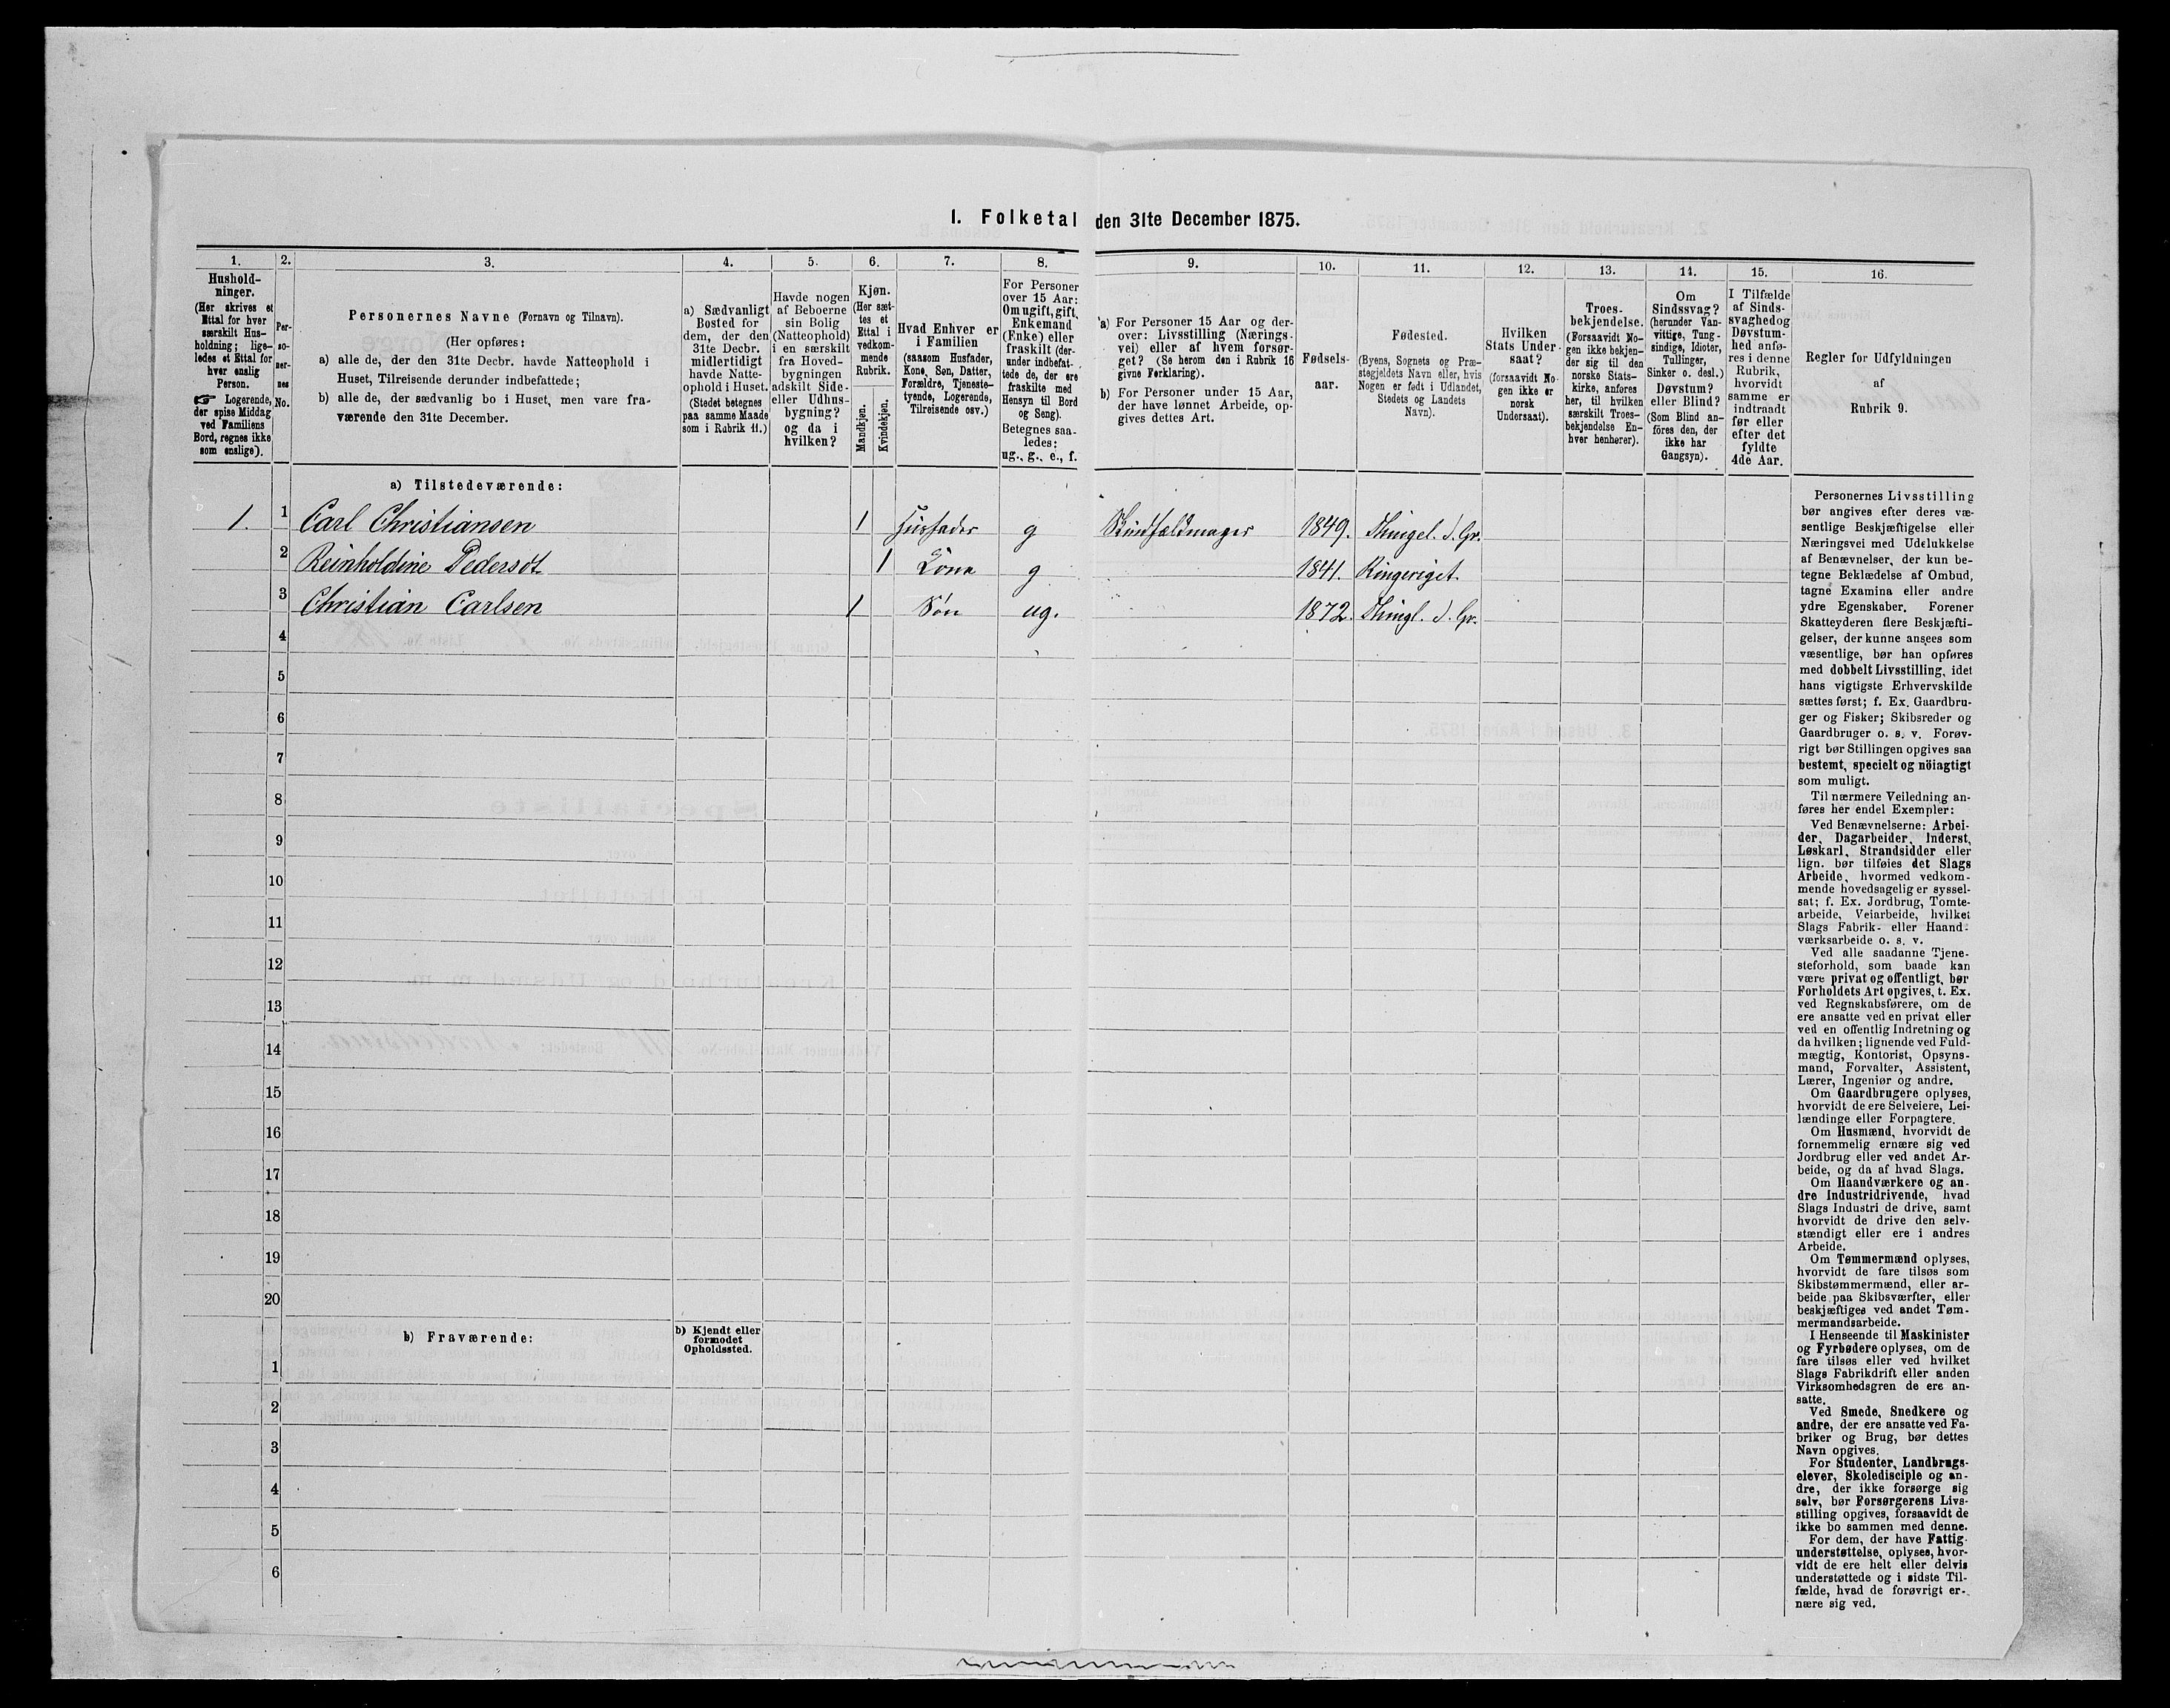 I. Folketal den 31te December 1875.
1.
Hushold-
ninger.
(Her skrives et
Ettal for hver
særskilt Hus-
holdning; lige-
ledes et Ettal for
hver enslig
Person.
☞ Logerende,
der spise Middag
ved Familiens
Bord, regnes ikke
som enslige).
2.
Per-
so-
ner-
nes
No.
3.
Personernes Navne (Fornavn og Tilnavn).
(Her opføres:
a) alle de, der den 31te Decbr. havde Natteophold i
Huset, Tilreisende derunder indbefattede;
b) alle de, der sædvanlig bo i Huset, men vare fra-
værende den 31te December.
4.
a) Sædvanligt
Bosted for
dem, der den
31te Decbr.
midlertidigt
havde Natte-
ophold i Huset.
(Stedet betegnes
paa samme Maade
som i Rubrik 11.)
5.
Havde nogen
af Beboerne
sin Bolig
(Natteophold)
i en særskilt
fra Hoved-
bygningen
adskilt Side-
eller Udhus-
bygning?
og da i
hvilken?
6.
Kjøn.
(Her sæt-
tes et
Ettal i
vedkom-
mende
Rubrik.
Mandkjøn.
Kvindekjøn.
7.
Hvad Enhver er
i Familien
(saasom Husfader,
Kone, Søn, Datter,
Forældre, Tjeneste-
tyende, Logerende,
Tilreisende osv.)
8.
For Personer
over 15 Aar:
Om ugift, gift,
Enkemand
(Enke) eller
fraskilt (der-
under indbefat-
tede de, der ere
fraskilte med
Hensyn til Bord
og Seng).
Betegnes saa-
ledes:
ug., g., e., f.
9.
a) For Personer 15 Aar og der-
over: Livsstilling (Nærings-
vei) eller af hvem forsør-
get? (Se herom den i Rubrik 16
givne Forklaring).
b) For Personer under 15 Aar,
der have lønnet Arbeide, op-
gives dettes Art.
10.
Fødsels-
aar.
11.
Fødested.
(Byens, Sognets og Præ-
stegjeldets Navn eller, hvis
Nogen er født i Udlandet,
Stedets og Landets
Navn).
12.
Hvilken
Stats Under-
saat?
(forsaavidt No-
gen ikke er
norsk
Undersaat).
13.
Troes-
bekjendelse.
(Forsaavidt No-
gen ikke bekjen-
der sig til den
norske Stats-
kirke, anføres
her, til hvilken
særskilt Troes-
bekjendelse En-
hver henhører).
14.
Om
Sindssvag?
(herunder Van-
vittige, Tung-
sindige, Idioter,
Tullinger,
Sinker o. desl.)
Døvstum?
eller Blind?
(Som Blind an-
føres den, der
ikke har
Gangsyn).
15.
I Tilfælde
af Sinds-
svaghed og
Døvstum-
hed anfø-
res i denne
Rubrik,
hvorvidt
samme er
indtraadt
før eller
efter det
fyldte
4de Aar.
16.
Regler for Udfyldningen
af
Rubrik 9.
a) Tilstedeværende:
1. 1 Carl Christiansen 1 Husfader g Skindfældmager 1849. Thingel. S. Gr.
2 Reinholdine Pedersdt. 1 Kone g 1841. Ringeriget.
3 Christian Carlsen 1 Søn ug. 1872. Thingl. S. Gr.
4
5
6
7
8
9
10
11
12
13
14
15
16
17
18
19
20
b) Fraværende:
b) Kjendt eller
formodet
Opholdssted.
1
2
3
4
5
6
Personernes Livsstilling
bør angives efter deres væ-
sentlige Beskjæftigelse eller
Næringsvei med Udelukkelse
af Benævnelser, der kun be-
tegne Beklædelse af Ombud,
tagne Examina eller andre
ydre Egenskaber. Forener
Skatteyderen flere Beskjæfti-
gelser, der kunne ansees som
væsentlige, bør han opføres
med dobbelt Livsstilling, idet
hans vigtigste Erhvervskilde
sættes først; f. Ex. Gaardbru-
ger og Fisker; Skibsreder og
Gaardbruger o. s. v. Forøv-
rigt bør Stillingen opgives saa
bestemt, specielt og nöiagtigt
som muligt.
Til nærmere Veiledning an-
føres her endel Exempler:
Ved Benævnelserne: Arbei-
der, Dagarbeider, Inderst,
Løskarl, Strandsidder eller
lign. bør tilføies det Slags
Arbeide, hvormed vedkom-
mende hovedsagelig er syssel-
sat; f. Ex. Jordbrug, Tomte-
arbeide, Veiarbeide, hvilket
Slags Fabrik- eller Haand-
værksarbeide o. s. v.
Ved alle saadanne Tjene-
steforhold, som baade kan
være privat og offentligt, bør
Forholdets Art opgives, t. Ex.
ved Regnskabsførere, om de
ere ansatte ved en privat eller
ved en offentlig Indretning og
da hvilken; lignende ved Fuld-
mægtig, Kontorist, Opsyns-
mand, Forvalter, Assistent,
Lærer, Ingeniør og andre.
Om Gaardbrugere oplyses,
hvorvidt de ere Selveiere, Lei-
lændinge eller Forpagtere.
Om Husmænd, hvorvidt de
fornemmelig ernære sig ved
Jordbrug eller ved andet Ar-
beide, og da af hvad Slags.
Om Haandværkere og an-
dre Industridrivende, hvad
Slags Industri de drive, samt
hvorvidt de drive den selv-
stændigt eller ere i andres
Arbeide.
Om Tømmermænd oplyses,
hvorvidt de fare tilsøs som
Skibstømmermænd, eller ar-
beide paa Skibsværfter, eller
beskjæftiges ved andet Tøm-
mermandsarbeide.
I Henseende til Maskinister
og Fyrbødere oplyses, om de
fare tilsøs eller ved hvilket
Slags Fabrikdrift eller anden
Virksomhedsgren de ere an-
satte.
Ved Smede, Snedkere og
andre, der ere ansatte ved Fa-
briker og Brug, bør dettes
Navn opgives.
For Studenter, Landbrugs-
elever, Skoledisciple og an-
dre, der ikke forsørge sig
selv, bør Forsørgerens Livs-
stilling opgives, forsaavidt de
ikke bo sammen med denne.
For dem, der have Fattig-
understøttelse, oplyses, hvor-
vidt de ere helt eller delvis
understøttede og i sidste Til-
fælde, hvad de forøvrigt er-
nære sig ved.